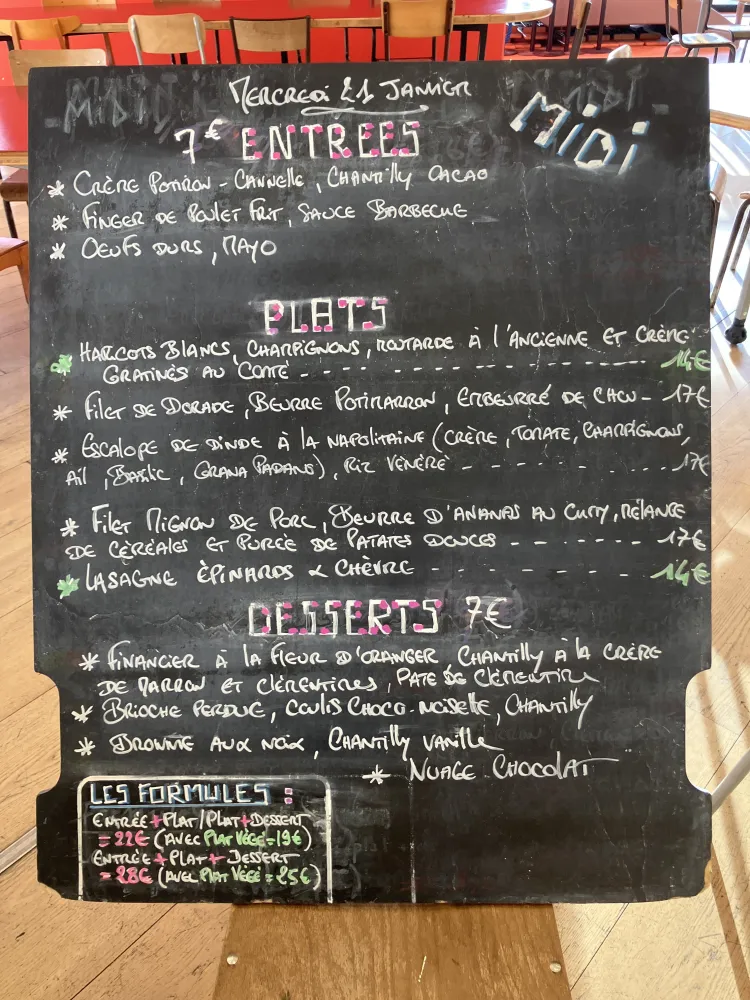 MERCREDI 21 JANVIER
MIDI
7€ ENTREES
* CRÈME POTIRON - CANNELLE, CHANTILLY CACAO
* FINGER DE POULET FRIT, SAUCE BARBECUE
* OEUFS DURS, MAYO
PLATS
HARICOTS BLANCS, CHAMPIGNONS, MOUTARDE À L'ANCIENNE ET CRÈME
GRATINÉS AU COMTÉ - - - - - - - - - - - - 14€
* FILET DE DORADE, BEURRE POTIMARRON, EMBEURRÉ DE CHOU - 17€
* ESCALOPE DE DINDE À LA NAPOLITAINE (CRÈME, TOMATE, CHAMPIGNONS,
AIL, BASILIC, GRANA PADANO), RIZ VÉNÉRÉ - - - - - - - - 17€
* FILET MIGNON DE PORC, BEURRE D'ANANAS AU CURRY, MÉLANGE
DE CÉRÉALES ET PURÉE DE PATATES DOUCES - - - - - - - 17€
LASAGNE ÉPINARDS & CHÈVRE - - - - - - - 14€
DESSERTS 7€
* FINANCIER À LA FLEUR D'ORANGER, CHANTILLY À LA CRÈME
DE MARRON ET CLÉMENTINES, PATE DE CLÉMENTINE
* BRIOCHE PERDUE, COULIS CHOCO-NOISETTE, CHANTILLY
* BROWNIE AUX NOIX, CHANTILLY VANILLE
* NUAGE CHOCOLAT
LES FORMULES :
ENTRÉE + PLAT / PLAT + DESSERT
= 22€ (AVEC PLAT VÉGÉ = 19€)
ENTRÉE + PLAT + DESSERT
= 28€ (AVEC PLAT VÉGÉ = 25€)